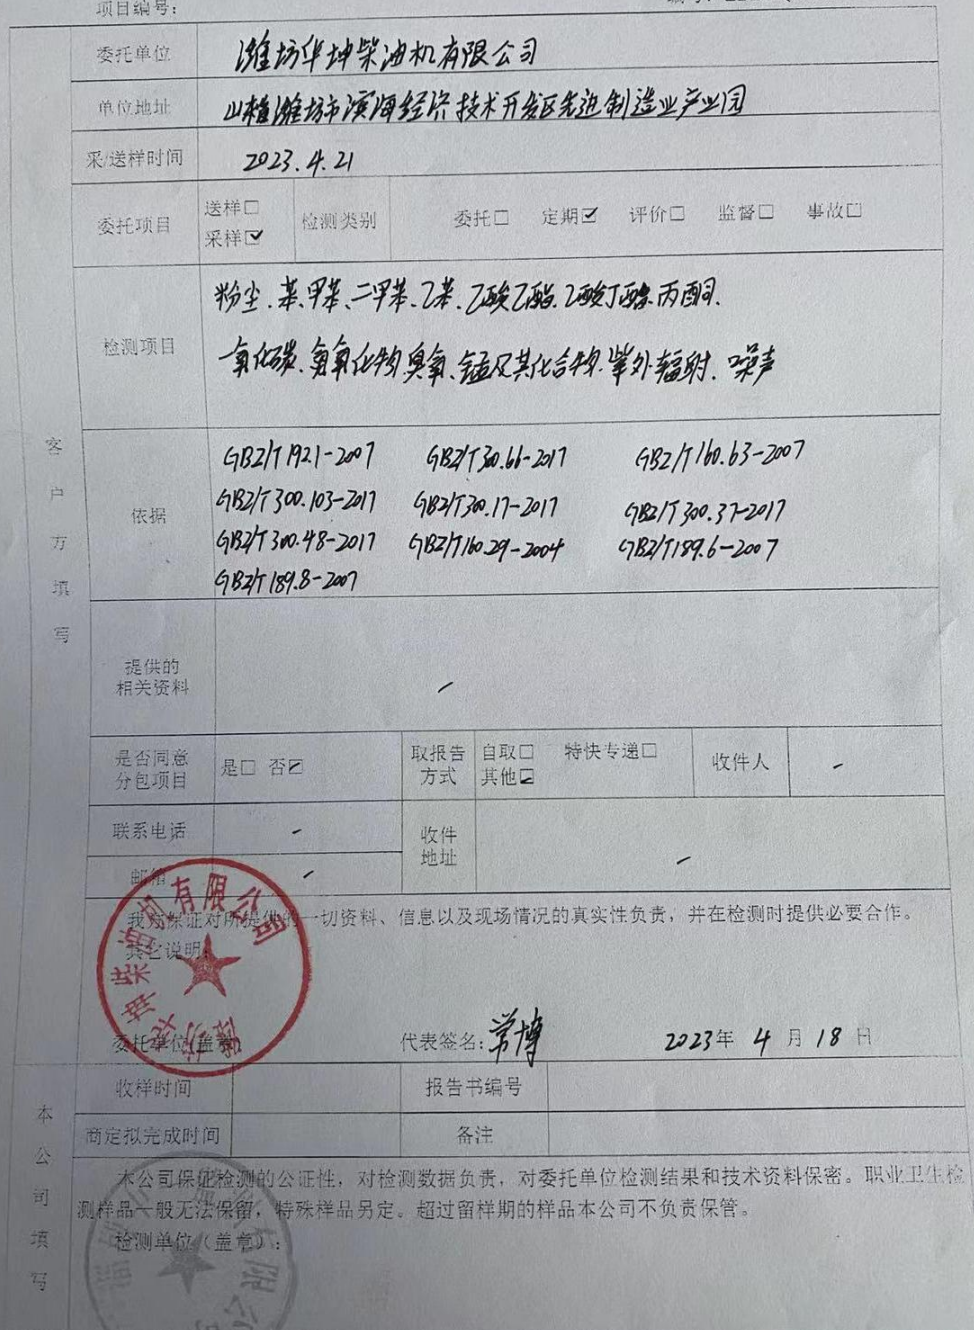 项目编号：
委托单位 潍坊华坤柴油机有限公司
单位地址 山东潍坊市滨海经济技术开发区先进制造业产业园
采/送样时间 2023.4.21
委托项目 送样□ 采样☑ 检测类别 委托□ 定期☑ 评价□ 监督□ 事故□
检测项目 粉尘、苯、甲苯、二甲苯、乙苯、乙酸乙酯、乙酸丁酯、丙酮、
一氧化碳、氮氧化物、臭氧、锰及其化合物、紫外辐射、噪声
客户方填写
依据 GBZ/T192.1-2007 GBZ/T300.66-2017 GBZ/T160.63-2007
GBZ/T300.103-2017 GBZ/T300.17-2017 GBZ/T300.37-2017
GBZ/T300.48-2017 GBZ/T160.29-2004 GBZ/T189.6-2007
GBZ/T189.8-2007
提供的
相关资料 /
是否同意
分包项目 是□ 否☑ 取报告
方式 自取□ 特快专递□
其他☑ 收件人 /
联系电话 / 收件
地址 /
邮箱 /
我方保证对所提供的一切资料、信息以及现场情况的真实性负责，并在检测时提供必要合作。
其它说明：
委托单位（盖章） 代表签名：常博 2023年 4 月 18 日
收样时间 报告书编号
商定拟完成时间 备注
本公司填写
本公司保证检测的公证性，对检测数据负责，对委托单位检测结果和技术资料保密。职业卫生检
测样品一般无法保留，特殊样品另定。超过留样期的样品本公司不负责保管。
检测单位（盖章）：